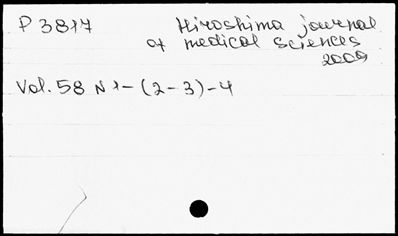 P 3817 Hiroshima journal
of medical sciences
2009
Vol. 58 N 1-(2-3)-4